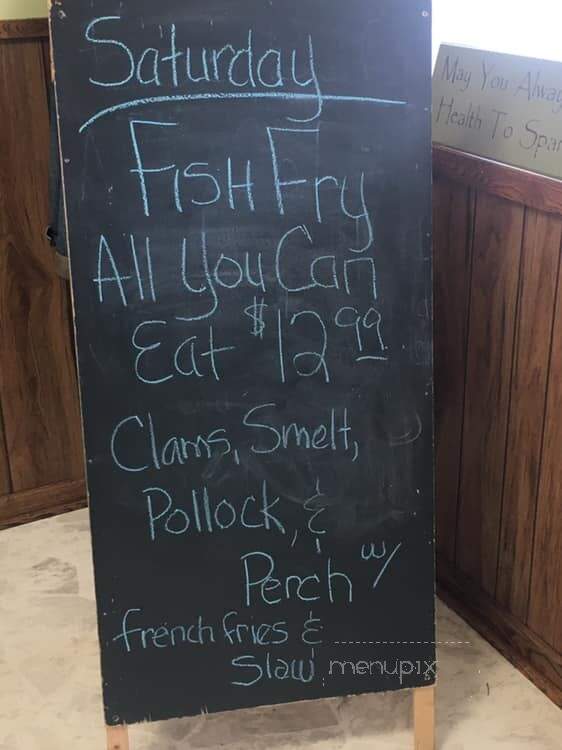 Saturday
Fish Fry
All You Can
Eat $12.99
Clams, Smelt,
Pollock, &
Perch w/
french fries &
Slaw
menupix
May You Alway
Health To Spar